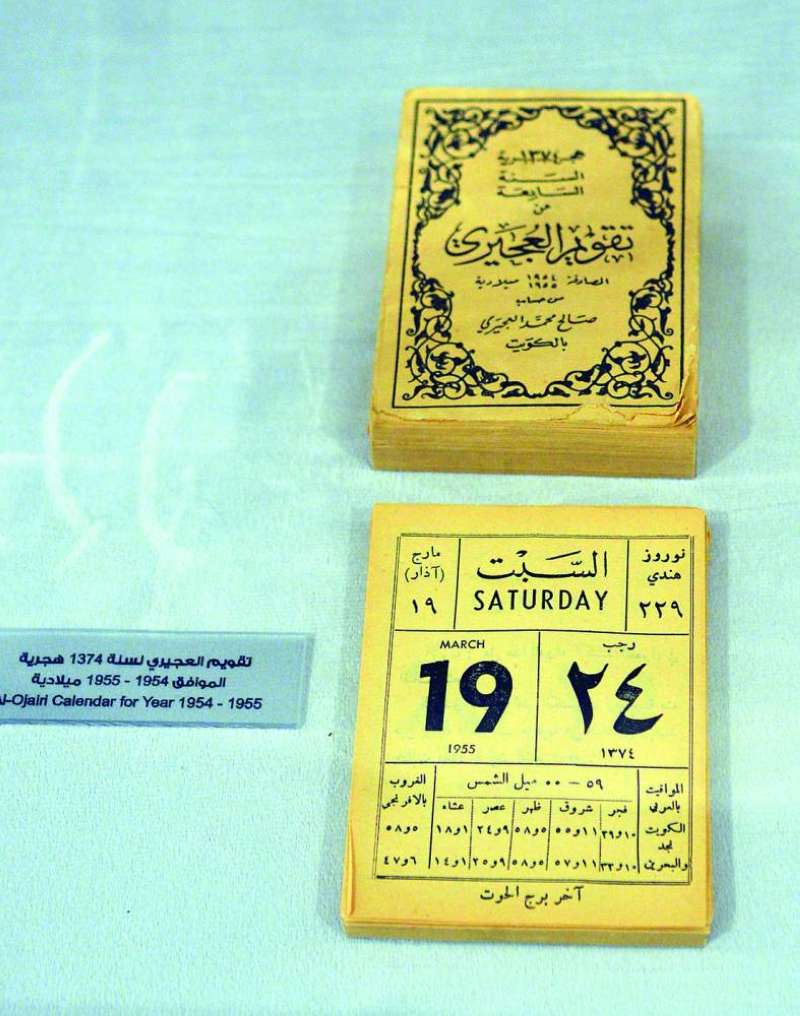 هجر١٣٧٤ـرية
السنة
السابعة
من
تقويم العجيري
المصادفة ١٩٥٤ ١٩٥٥ ميلادية
من حساب
صالح محمد العجيري
بالكويت
نوروز
هندي
٢٢٩
السَّبْت
SATURDAY
مارج
(آذار)
١٩
رجب
٢٤
١٣٧٤
MARCH
19
1955
المواقيت
بالعربي
٥٩ — ٠٠ ميل الشمس
الغروب
بالافرنجي
فجر شروق ظهر عصر عشاء
الكويت ١٠و٢٩ ١١و٥٥ ٥و٥٨ ٩و٢٤ ١و١٨ ٥و٥٨
نجد
والبحرين ١٠و٣٣ ١١و٥٧ ٥و٥٨ ٩و٢٥ ١و١٤ ٦و٤٧
آخر برج الحوت
تقويم العجيري لسنة 1374 هجرية
الموافق 1954 - 1955 ميلادية
l-Ojairi Calendar for Year 1954 - 1955